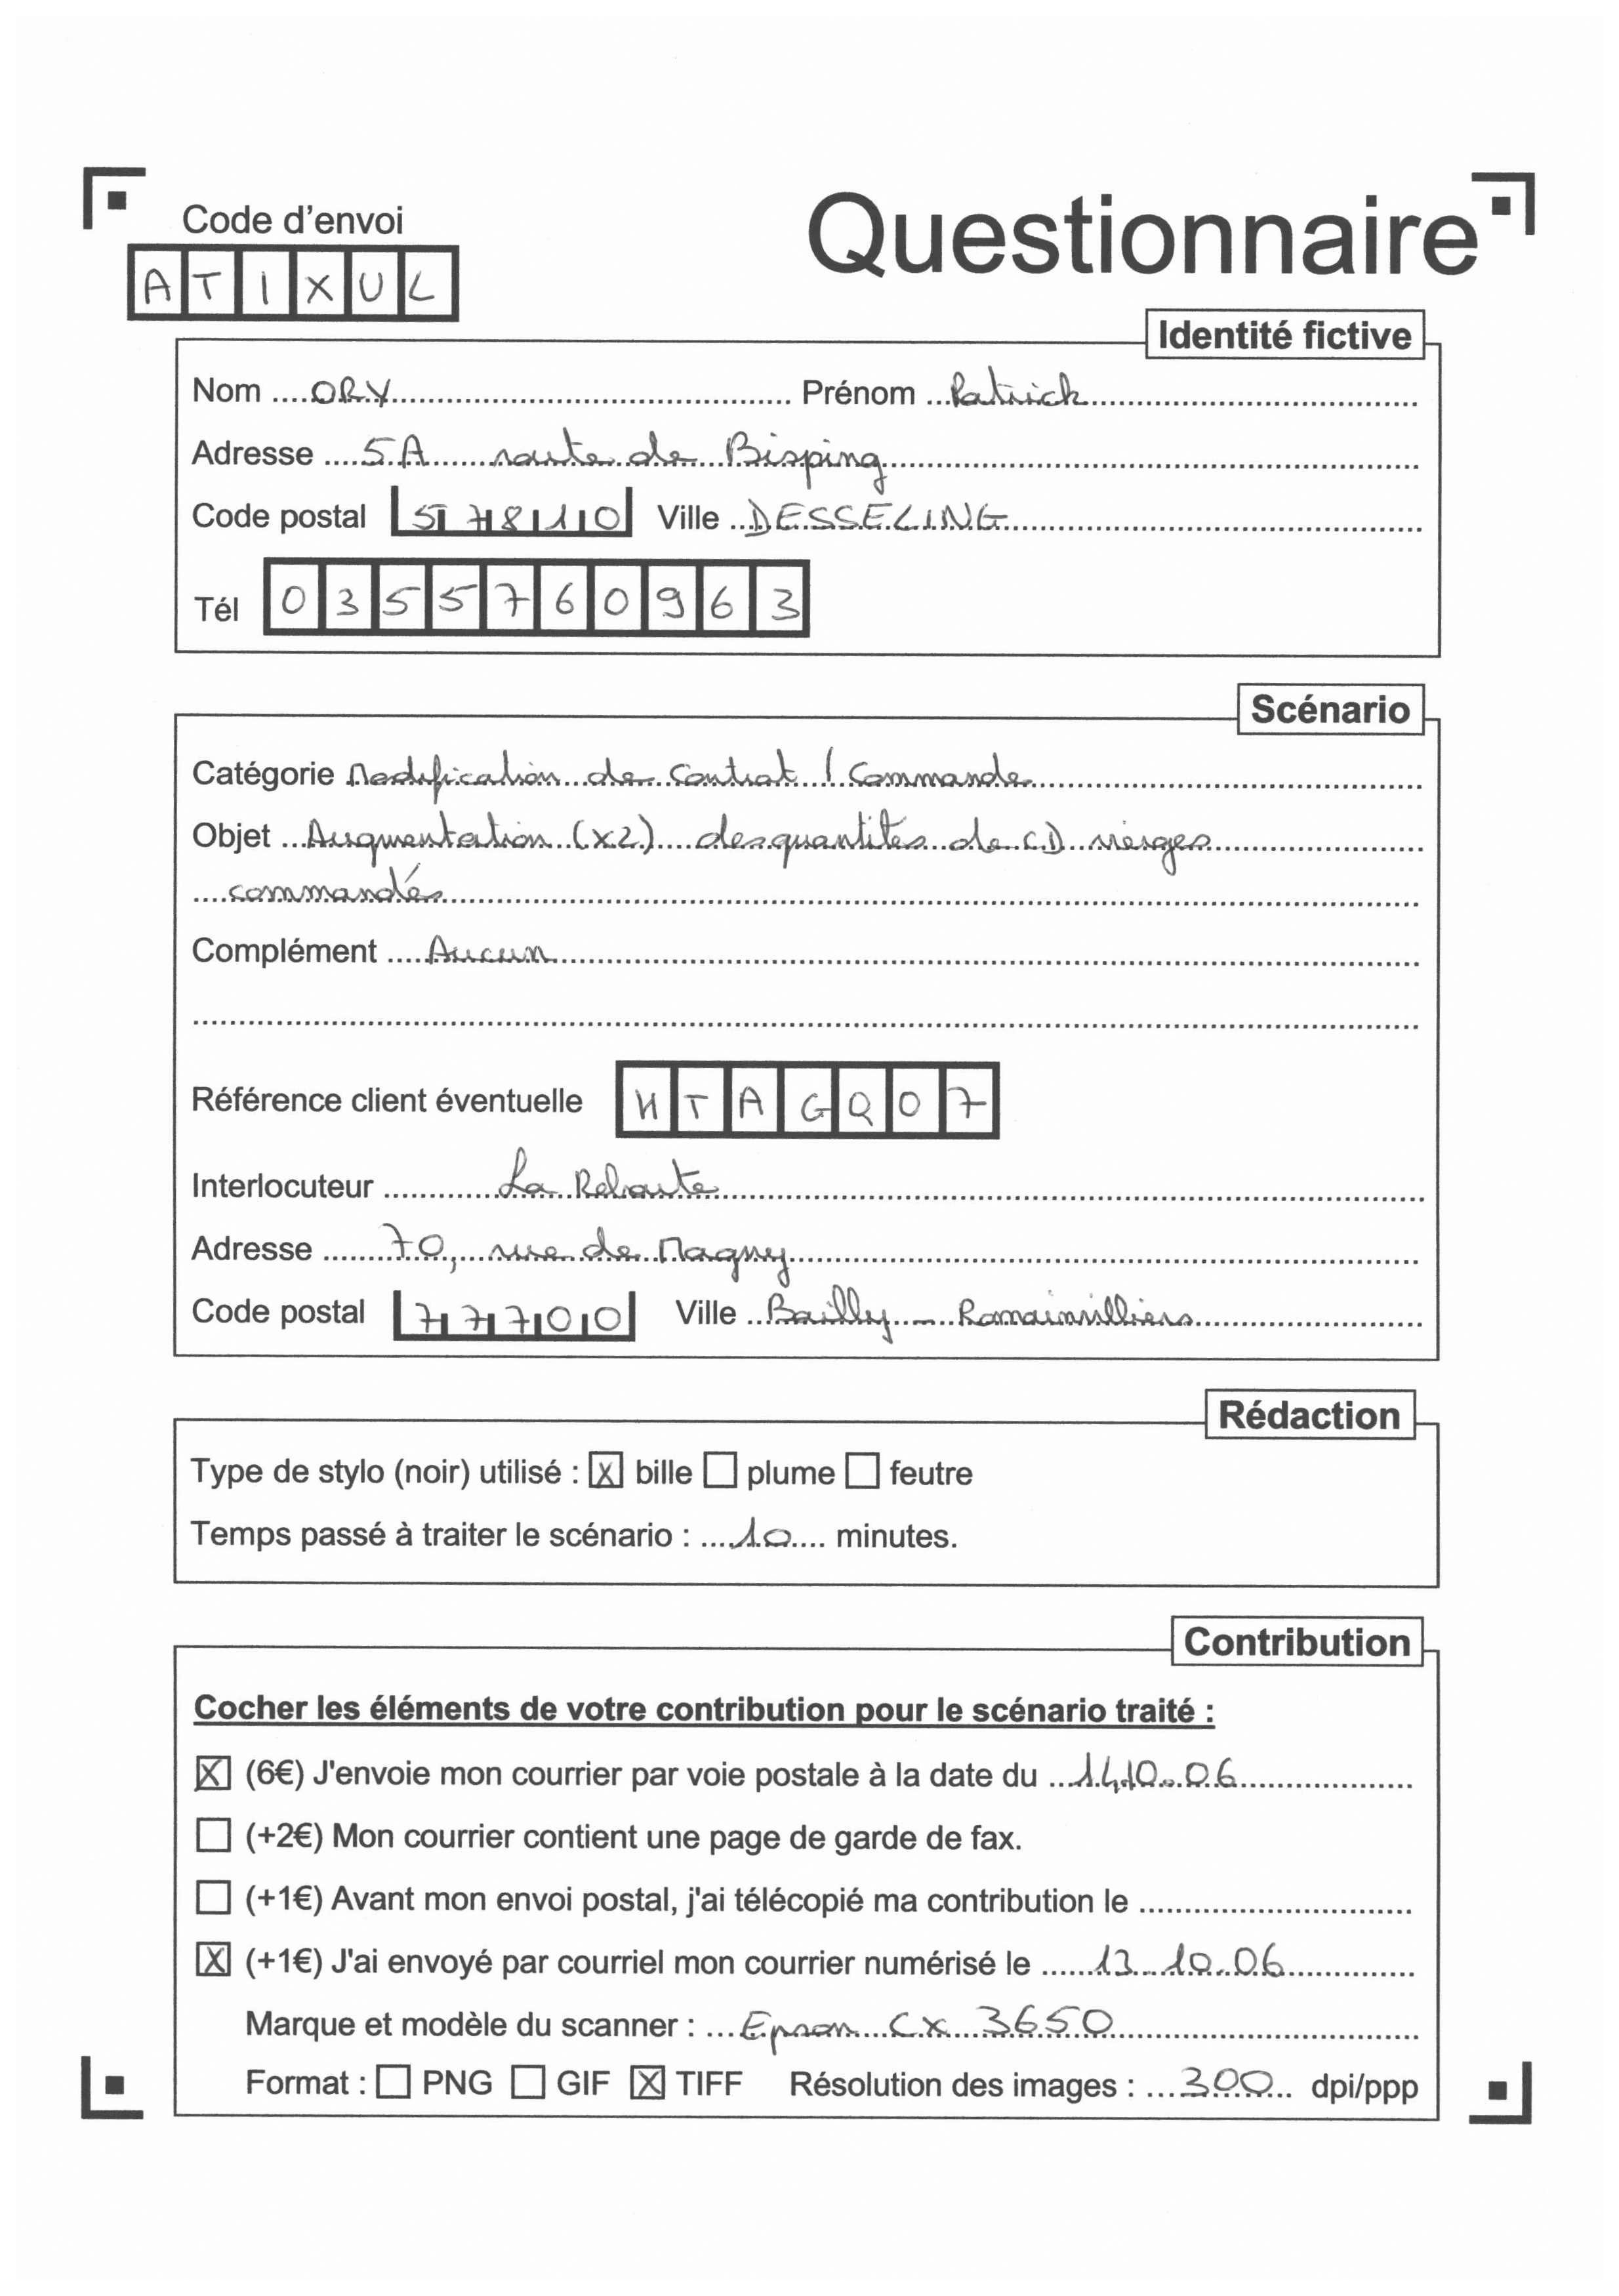 Code d'envoi
Questionnaire
ATIXUL
Identité fictive
Nom ORY Prénom Patrick
Adresse 5A route de Bisping
Code postal 57810 Ville DESSELING
Tél 0355760963
Scénario
Catégorie Modification de contrat / commande
Objet Augmentation (x2) des quantités de CD vierges
commandés
Complément Aucun
Référence client éventuelle HTAGQ07
Interlocuteur La Redoute
Adresse 70, rue de Magny
Code postal 77700 Ville Bailly - Romainvilliers
Rédaction
Type de stylo (noir) utilisé : ☒ bille ☐ plume ☐ feutre
Temps passé à traiter le scénario : 10 minutes.
Contribution
Cocher les éléments de votre contribution pour le scénario traité :
☒ (6€) J'envoie mon courrier par voie postale à la date du 14.10.06
☐ (+2€) Mon courrier contient une page de garde de fax.
☐ (+1€) Avant mon envoi postal, j'ai télécopié ma contribution le
☒ (+1€) J'ai envoyé par courriel mon courrier numérisé le 13.10.06
Marque et modèle du scanner : Epson CX 3650
Format : ☐ PNG ☐ GIF ☒ TIFF Résolution des images : 300 dpi/ppp